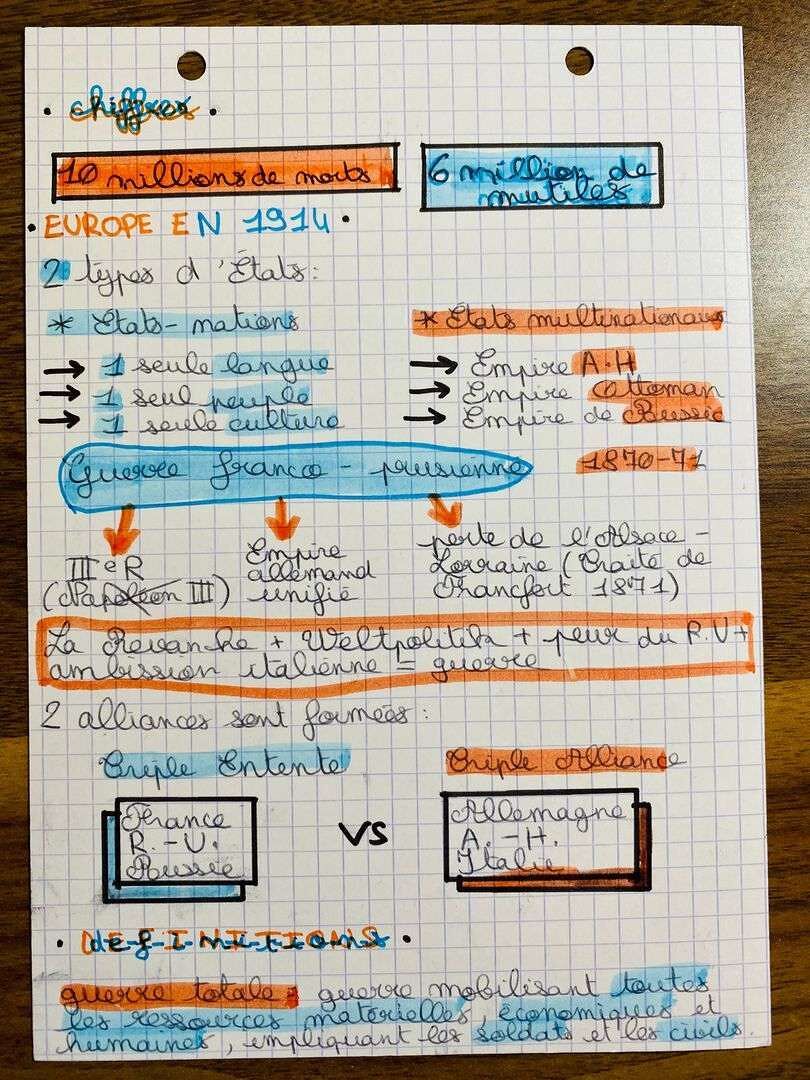 • chiffres •
10 millions de morts
6 million de
mutilés
• EUROPE EN 1914 •
2 types d'États :
* États-nations
* États multinationaux
→ 1 seule langue
→ Empire A.H
→ 1 seul peuple
→ Empire Ottoman
→ 1 seule culture
→ Empire de Russie
Guerre franco-prusienne
1870-71
III e R
(Napoléon III)
Empire
allemand
unifié
perte de l'Alsace-
Lorraine (Traité de
Francfort 1871)
La Revanche + Weltpolitik + peur du R.U +
ambission italienne = guerre
2 alliances sont formées :
Triple Entente
Triple Alliance
France
R.-U.
Russie
VS
Allemagne
A.-H.
Italie
• DÉFINITIONS •
guerre totale : guerre mobilisant toutes
les ressources matorielles, économiques et
humaines, impliquant les soldats et les civils.